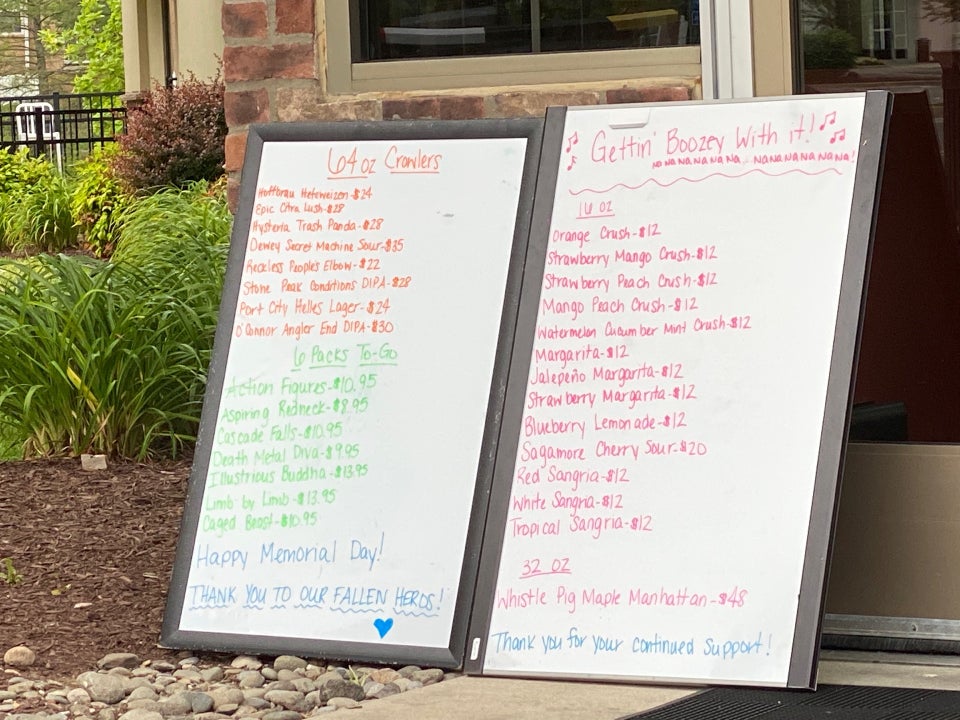 64oz Crowlers
Hoffbrau Hefeweizen-$24
Epic Citra Lush-$28
Hysteria Trash Panda-$28
Dewey Secret Machine Sour-$35
Reckless People's Elbow-$22
Stone Peak Conditions DIPA-$28
Port City Helles Lager-$24
O'Connor Anglor End DIPA-$30
6 Packs To-Go
Action Figures-$10.95
Aspiring Redneck-$8.95
Cascade Falls-$10.95
Death Metal Diva-$9.95
Illustrious Buddha-$13.95
Limb by Limb-$13.95
Caged Beast-$10.95
Happy Memorial Day!
THANK YOU TO OUR FALLEN HEROS!
Gettin' Boozey With it!
NANANANANANA.. NANANANANANA!
16 OZ
Orange Crush-$12
Strawberry Mango Crush-$12
Strawberry Peach Crush-$12
Mango Peach Crush-$12
Watermelon Cucumber Mint Crush-$12
Margarita-$12
Jalepeño Margarita-$12
Strawberry Margarita-$12
Blueberry Lemonade-$12
Sagamore Cherry Sour-$20
Red Sangria-$12
White Sangria-$12
Tropical Sangria-$12
32 OZ
Whistle Pig Maple Manhattan-$48
Thank you for your continued Support!